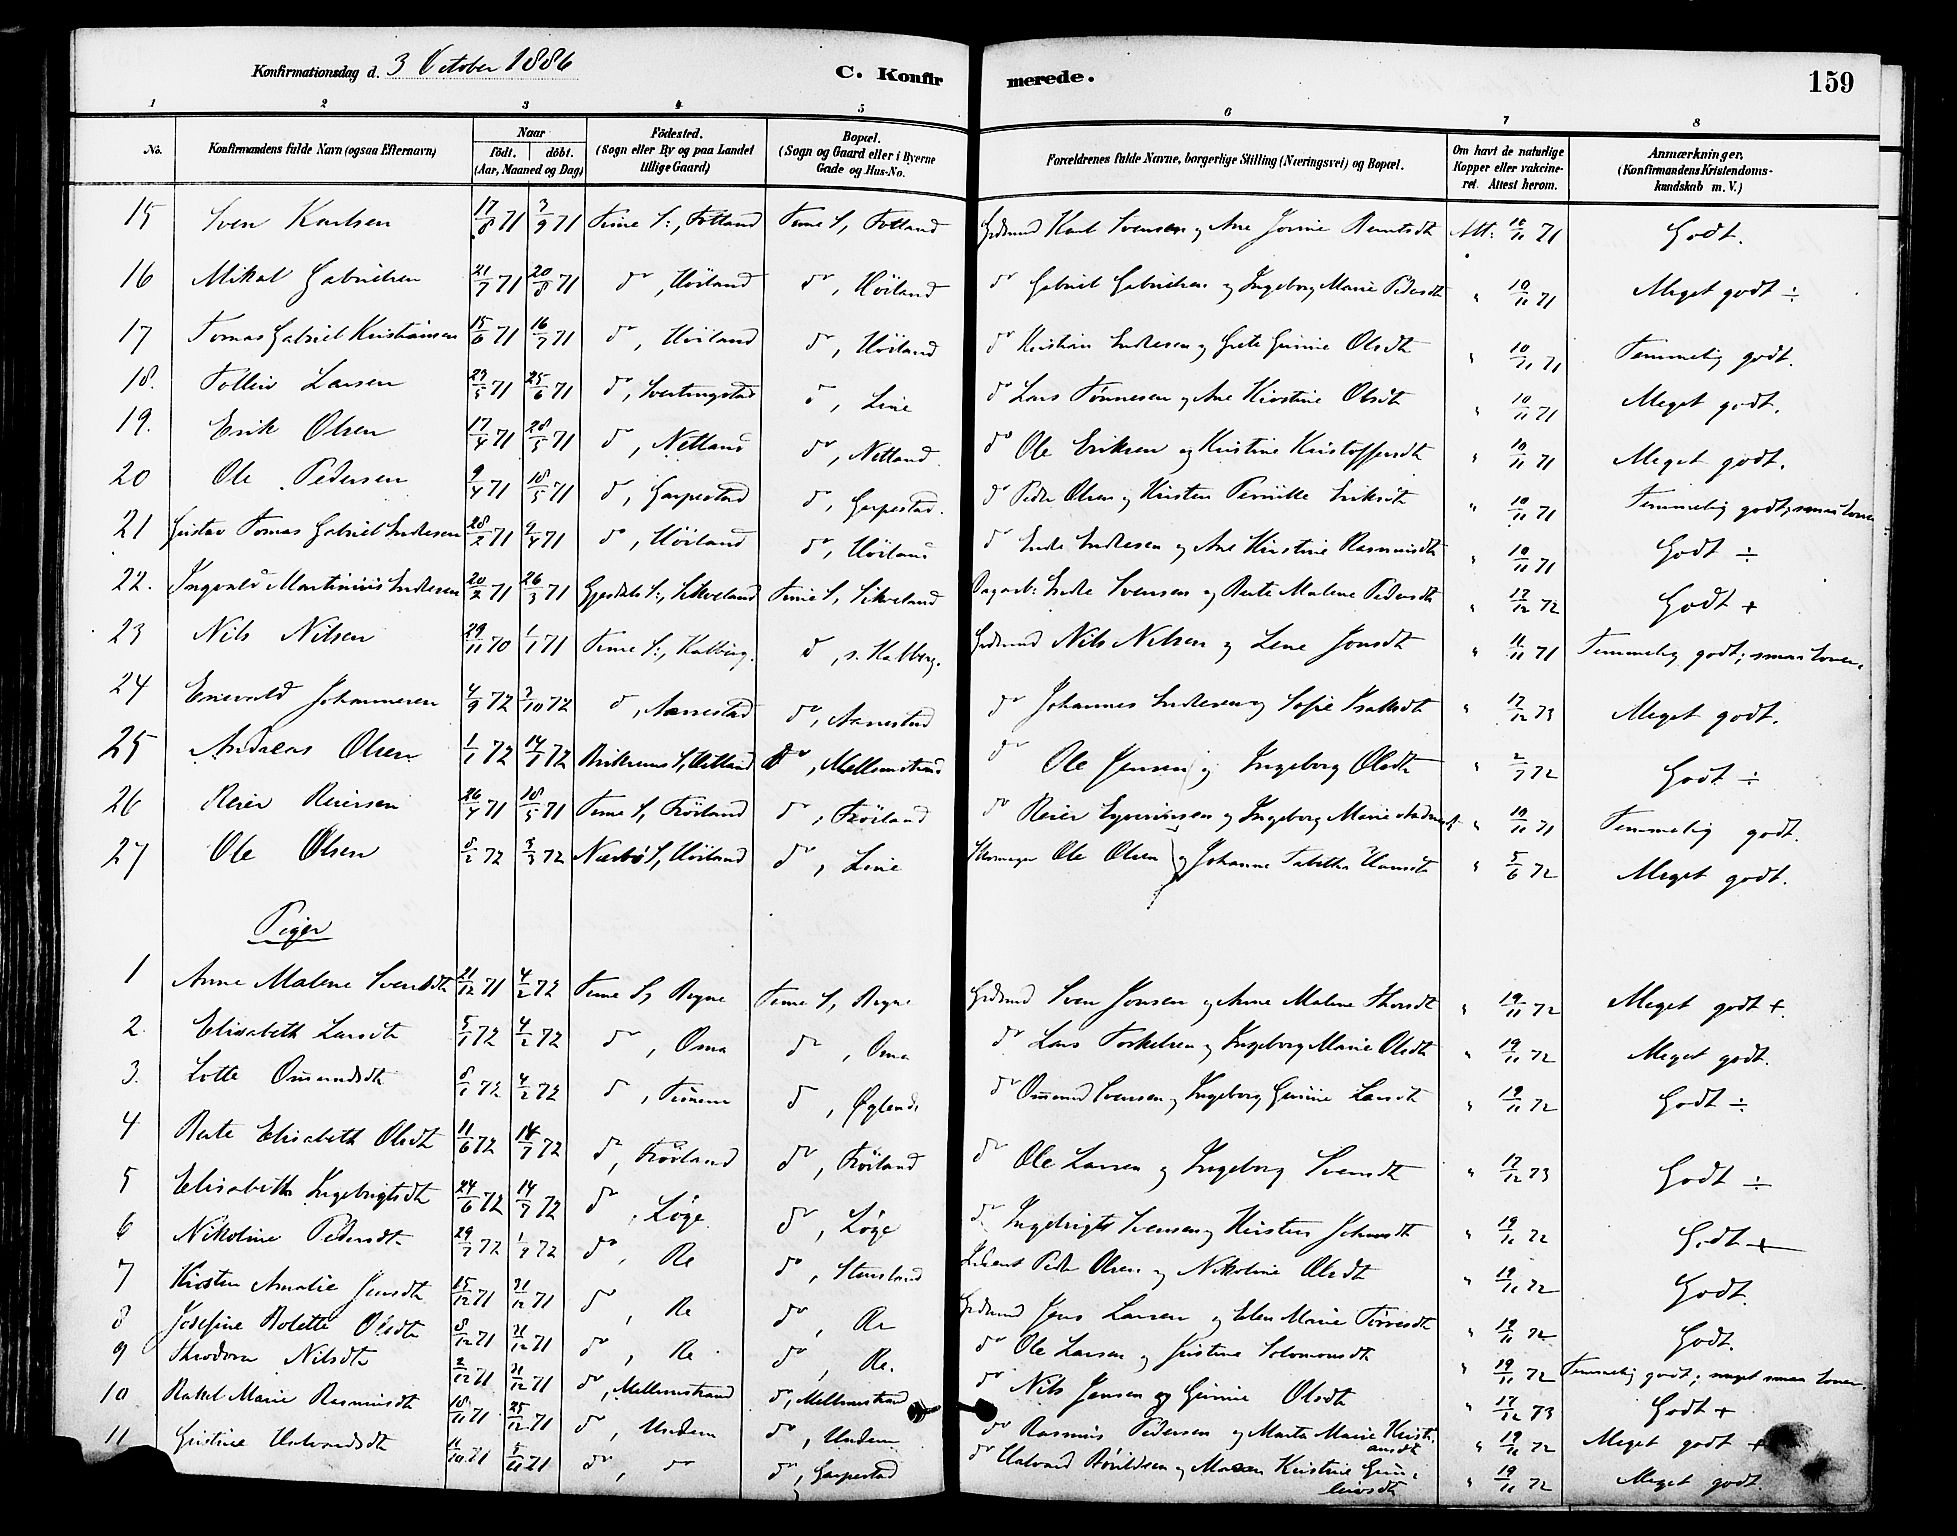 Konfirmationsdag d. 3 October 1886
C. Konfirmerede.
159
1 2 3 4 5 6 7 8
No.
Konfirmandens fulde Navn (ogsaa Efternavn)
Naar
födt. döbt.
(Aar, Maaned og Dag)
Födested.
(Sogn eller By og paa Landet
tillige Gaard)
Bopæl.
(Sogn og Gaard eller i Byerne
Gade og Hus-No.
Forældrenes fulde Navne, borgerlige Stilling (Næringsvei) og Bopæl.
Om havt de naturlige
Kopper eller vakcine-
ret. Attest herom.
Anmærkninger.
(Konfirmandens Kristendoms-
kundskab m. V.)
15 Sven Karlsen 17/8 71 3/9 71 Time S:, Fotland Time S, Fotland Grdmnd Karl Svensen og Ane Jorine Berntsdt Att: 10/11 71 Godt.
16 Mikal Gabrielsen 21/7 71 20/8 71 do, Höiland do, Höiland do Gabriel Gabrielsen og Ingeborg Marie Pedersdt " 10/11 71 Meget godt ÷
17 Tomas Gabriel Kristiansen 15/6 71 16/7 71 do, Höiland do, Höiland do Kristian Endresen og Grete Gurine Olsdt " 10/11 71 Temmelig godt.
18. Tolliv Larsen 23/5 71 25/6 71 do, Svertingstad do, Line do Lars Tønnesen og Ane Kirstine Olsdt " 10/11 71 Meget godt.
19. Erik Olsen 17/4 71 28/5 71 do, Netland do, Netland. do Ole Eriksen og Kristine Kristoffersdt " 10/11 71 Meget godt.
20 Ole Pedersen 9/4 71 18/5 71 do, Garpestad do, Garpestad. do Peder Olsen og Kirsten Pernille Eriksdt " 10/11 71 Temmelig godt;
21 Gustav Tomas Gabriel Endresen 28/2 71 9/4 71 do, Höiland do, Höiland do Endre Endresen og Ane Kirstine Rasmusdt " 10/11 71 Godt ÷
22. Ingvald Martinius Endresen 20/2 71 26/3 71 Gjesdals S:, Sikveland Time S, Sikveland Dagarb: Endre Svensen og Berte Malene Pedersdt " 12/12 72 Godt +
23 Nils Nilsen 29/11 70 1/1 71 Time S:, Kalberg. do, s. Kalberg. Grdmnd Nils Nilsen og Lene Jonsdt " 11/11 71 Temmelig godt;
24 Enevald Johannesen 4/9 72 3/10 72 do, Aarrestad do, Aarrestad do Johannes Endresen og Sofie Isaksdt " 12/12 73 Meget godt.
25 Andreas Olsen 1/1 72 14/1 72 S, Hetland do, Mellemstrand do Ole Jensen og Ingeborg Olsdt " 2/7 72 Godt ÷
26 Reier Reiersen 26/4 71 18/5 71 Time S, Fröiland do, Fröiland do Reier og Ingeborg Marie " 10/11 71 Temmelig godt.
27 Ole Olsen 8/2 72 3/3 72 Nærbö S, Höiland do, Line Skomager Ole Olsen og Johanne Tabitha Hansdt " 5/6 72 Meget godt.
Piger
1 Anne Malene Svensdt 21/12 71 4/2 72 Time S, Bryne Time S, Bryne Grdmnd Sven Jonsen og Anne Malene Thorsdt " 19/11 72 Meget godt +.
2. Elisabeth Larsdt 5/1 72 4/2 72 do, Oma do, Oma do Lars Torkelsen og Ingeborg Marie Olsdt " 19/11 72 Meget godt.
3. Lotte Ommundsdt 8/1 72 4/2 72 do, Tunem do, Øglend. do Ommund Svensen og Ingeborg Gurine Larsdt " 19/11 72 Godt ÷
4 Berte Elisabeth Olsdt 11/6 72 14/7 72 do, Fröiland do, Fröiland do Ole Larsen og Ingeborg Svensdt " 12/12 73 Godt ÷
5 Elisabeth Ingebrigtsdt 24/6 72 14/7 72 do, Löge. do, Löge do Ingebrigt Svensen og Kirsten Johnsdt " 19/11 72 Godt +
6 Nikoline Pedersdt. 29/7 72 1/9 72 do, Re do, Stensland Peder Olsen og Nikoline Olsdt " 19/11 72 Godt.
7 Kirsten Amalie Jensdt 15/12 71 31/12 71 do, Re do, Re Grdmnd Jens Larsen og Elen Marie Törresdt " 19/11 72 Godt.
8 Josefine Bolette Olsdt 8/12 71 31/12 71 do, Re do, Re. do Ole Larsen og Justine Solomonsdt " 19/11 72 Temmelig godt;
9 Theodora Nilsdt 2/12 71 31/12 71 do, Mellemstrand do, Mellemstrand do Nils Jensen og Gurine Olsdt " 12/12 73 Godt +
10 Rakel Marie Rasmusdt 18/11 71 25/12 71 do, Undem do, Undem do Rasmus Pedersen og Marte Marie Kristi-
ansdt " 19/11 72 Meget godt +
11 Gustine Halvordsdt 11/10 71 5/11 71 do, do do, Garpestad do Halvard og Maren Kirstine Gun-
leivsdt " 19/11 72 Meget godt.